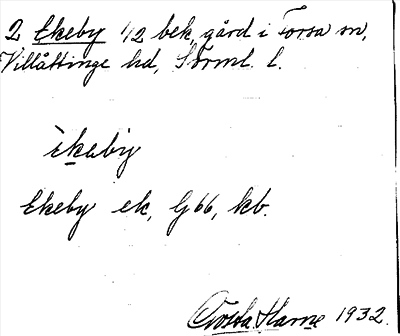 2 Ekeby 1/2 bek, gård i Forsa sn,
Villåttinge hd, Sörml. l.
ìkaby
Ekeby ek, G66, kb.
Gösta Harne 1932.